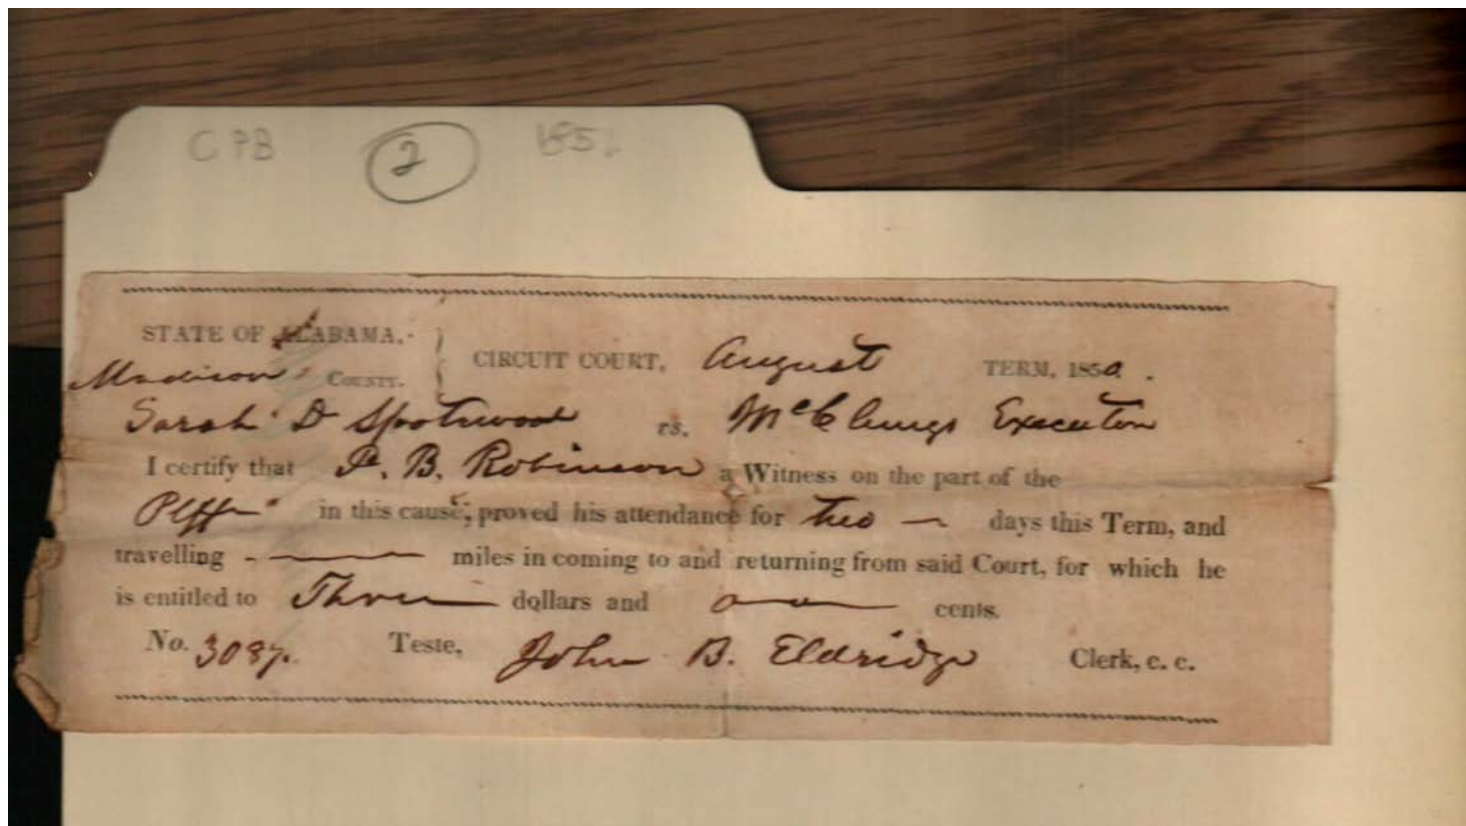 CPB 2 185
STATE OF ALABAMA,
Madison COUNTY. } CIRCUIT COURT, August TERM, 1850.
Sarah D Spotswood vs. McClungs Executor
I certify that P. B. Robinson a Witness on the part of the
Plffn in this cause, proved his attendance for two — days this Term, and
travelling - — miles in coming to and returning from said Court, for which he
is entitled to Three dollars and cents.
No. 3087. Teste, John B. Eldridge Clerk, c. c.